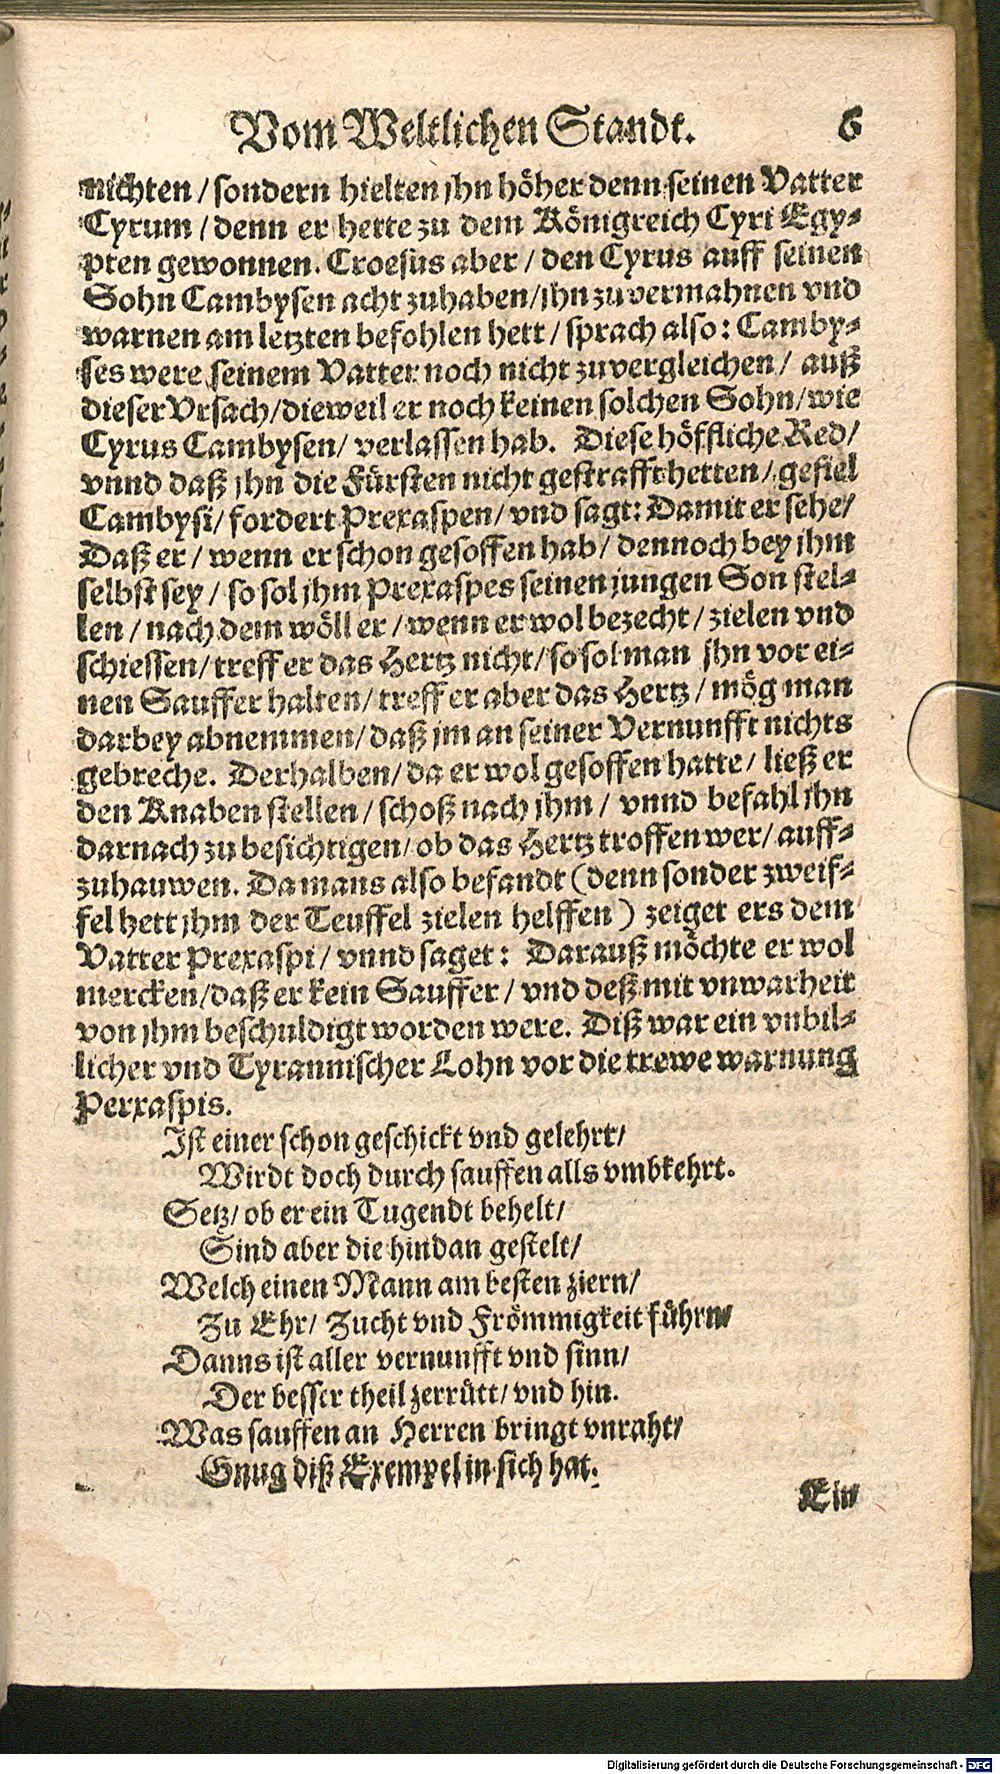 Vom Weltlichen Standt. 6
nichten / sondern hielten jhn höher denn seinen Vatter
Cyrum / denn er hette zu dem Königreich Cyri Egy-
pten gewonnen. Croesus aber / den Cyrus auff seinen
Sohn Cambysen acht zuhaben / jhn zu vermahnen vnd
warnen am letzten befohlen hett / sprach also: Camby-
ses were seinem Vatter noch nicht zuvergleichen / auß
dieser Vrsach / dieweil er noch keinen solchen Sohn / wie
Cyrus Cambysen / verlassen hab. Diese höffliche Red /
vnnd daß jhn die Fürsten nicht gestrafft hetten / gefiel
Cambysi / fordert Prexaspen / vnd sagt: Damit er sehe /
Daß er / wenn er schon gesoffen hab / dennoch bey jhm
selbst sey / so sol jhm Prexaspes seinen jungen Son stel-
len / nach dem wöll er / wenn er wol bezecht / zielen vnd
schiessen / treff er das Hertz nicht / so sol man jhn vor ei-
nen Sauffer halten / treff er aber das Hertz / mög man
darbey abnemmen / daß jm an seiner Vernunfft nichts
gebreche. Derhalben / da er wol gesoffen hatte / ließ er
den Knaben stellen / schoß nach jhm / vnnd befahl jhn
darnach zu besichtigen / ob das Hertz troffen wer / auff-
zuhauwen. Da mans also befandt (denn sonder zweif-
fel hett jhm der Teuffel zielen helffen) zeiget ers dem
Vatter Prexaspi / vnnd saget: Darauß möchte er wol
mercken / daß er kein Sauffer / vnd deß mit vnwarheit
von jhm beschuldigt worden were. Diß war ein vnbil-
licher vnd Tyrannischer Lohn vor die trewe warnung
Perxaspis.
Ist einer schon geschickt vnd gelehrt /
Wirdt doch durch sauffen alls vmbkehrt.
Setz / ob er ein Tugendt behelt /
Sind aber die hindan gestelt /
Welch einen Mann am besten ziern /
Zu Ehr / Zucht vnd Frömmigkeit führn /
Danns ist aller vernunfft vnd sinn /
Der besser theil zerrütt / vnd hin.
Was sauffen an Herren bringt vnraht /
Gnug diß Exempel in sich hat.
Ein
Digitalisierung gefördert durch die Deutsche Forschungsgemeinschaft - DFG